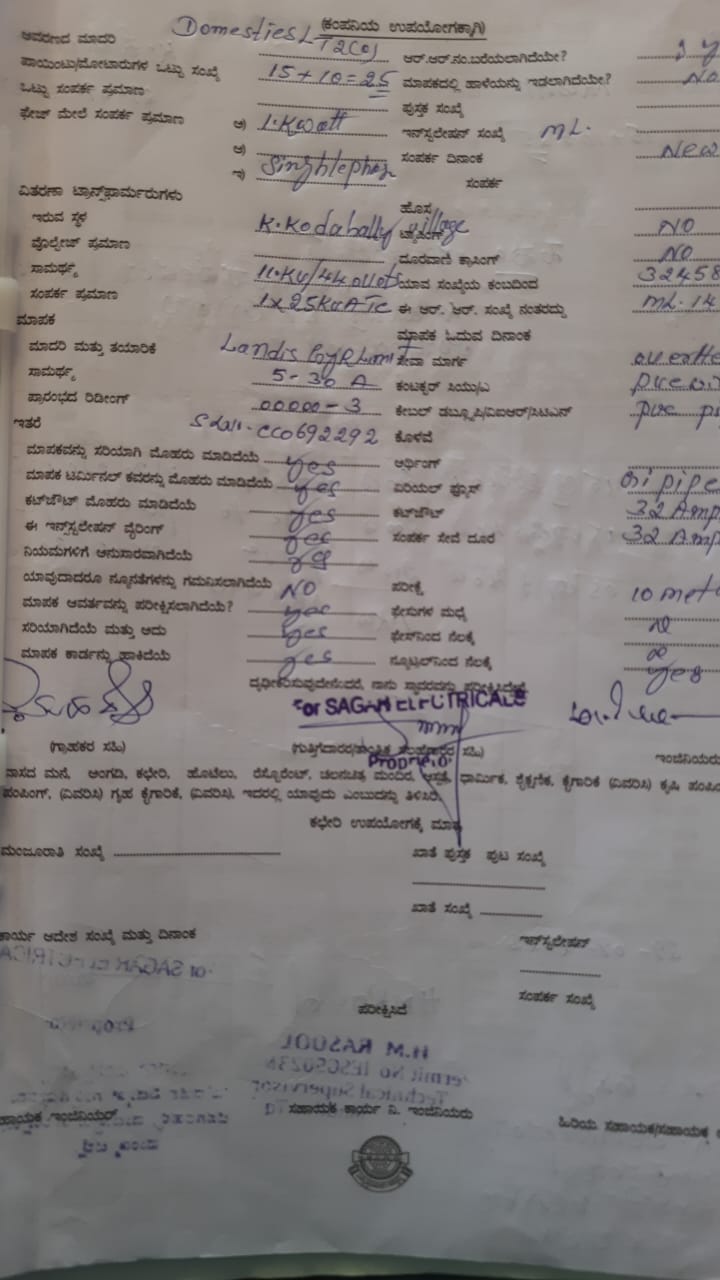 (ಕಂಪನಿಯ ಉಪಯೋಗಕ್ಕಾಗಿ)
ಆವರಣದ ಮಾದರಿ Domesties LT2(a) ಆರ್.ಆರ್.ನಂ.ಬರೆಯಲಾಗಿದೆಯೇ?
ಪಾಯಿಂಟು/ಮೋಟಾರುಗಳ ಒಟ್ಟು ಸಂಖ್ಯೆ 15+10=25 ಮಾಪಕದಲ್ಲಿ ಹಾಳೆಯನ್ನು ಇಡಲಾಗಿದೆಯೇ? No
ಒಟ್ಟು ಸಂಪರ್ಕ ಪ್ರಮಾಣ ಪುಸ್ತಕ ಸಂಖ್ಯೆ
ಫೇಜ್ ಮೇಲೆ ಸಂಪರ್ಕ ಪ್ರಮಾಣ ಅ) 1.Kwatt ಇನ್‌ಸ್ಟಲೇಷನ್ ಸಂಖ್ಯೆ ML.
ಆ) ಸಂಪರ್ಕ ದಿನಾಂಕ New
ಇ) ಸಂಪರ್ಕ
ವಿತರಣಾ ಟ್ರಾನ್ಸ್‌ಫಾರ್ಮರುಗಳು ಹೊಸ
ಇರುವ ಸ್ಥಳ K.Kodahally village ಟ್ಯಾಪಿಂಗ್ NO
ವೊಲ್ಟೇಜ್ ಪ್ರಮಾಣ ದೂರವಾಣಿ ಕ್ರಾಸಿಂಗ್ NO
ಸಾಮರ್ಥ್ಯ ಯಾವ ಸಂಖ್ಯೆಯ ಕಂಬದಿಂದ 32458
ಸಂಪರ್ಕ ಪ್ರಮಾಣ ಈ ಆರ್. ಆರ್. ಸಂಖ್ಯೆ ನಂತರದ್ದು ML.14
ಮಾಪಕ ಮಾಪಕ ಓದುವ ದಿನಾಂಕ
ಮಾದರಿ ಮತ್ತು ತಯಾರಿಕೆ Landis ಸೇವಾ ಮಾರ್ಗ
ಸಾಮರ್ಥ್ಯ 5-30 A ಕಂಟಕ್ಟರ್ ಸಿಯು/ಎ
ಪ್ರಾರಂಭದ ರಿಡೀಂಗ್ 00000-3 ಕೇಬಲ್ ಡಬ್ಲ್ಯೂಪಿ/ಐಆರ್/ಸಿಟಿಎಸ್
ಇತರೆ ಕೊಳವೆ
ಮಾಪಕವನ್ನು ಸರಿಯಾಗಿ ಮೊಹರು ಮಾಡಿದೆಯೆ yes ಅರ್ಥಿಂಗ್
ಮಾಪಕ ಟರ್ಮಿನಲ್ ಕವರನ್ನು ಮೊಹರು ಮಾಡಿದೆಯೆ yes ಏರಿಯಲ್ ಫ್ಯೂಸ್ pipe
ಕಟ್‌ಔಟ್ ಮೊಹರು ಮಾಡಿದೆಯೆ yes ಕಟ್‌ಔಟ್ 32 Amp
ಈ ಇನ್‌ಸ್ಟಲೇಷನ್ ವೈರಿಂಗ್ yes ಸಂಪರ್ಕ ಸೇವೆ ದೂರ 32 Amp
ನಿಯಮಗಳಿಗೆ ಅನುಸಾರವಾಗಿದೆಯೆ yes
ಯಾವುದಾದರೂ ನ್ಯೂನತೆಗಳನ್ನು ಗಮನಿಸಲಾಗಿದೆಯೆ NO ಪರೀಕ್ಷೆ 10 met
ಮಾಪಕ ಆವರ್ತವನ್ನು ಪರೀಕ್ಷಿಸಲಾಗಿದೆಯೆ? yes ಫೇಸುಗಳ ಮಧ್ಯೆ
ಸರಿಯಾಗಿದೆಯೆ ಮತ್ತು ಅದು yes ಫೇಸ್‌ನಿಂದ ನೆಲಕ್ಕೆ
ಮಾಪಕ ಕಾರ್ಡನ್ನು ಹಾಕಿದೆಯೆ yes ನ್ಯೂಟ್ರಲ್‌ನಿಂದ ನೆಲಕ್ಕೆ yes
ದೃಢೀಕರಿಸುವುದೇನೆಂದರೆ, ನಾನು ಸ್ಥಾವರವನ್ನು ಪರೀಕ್ಷಿಸಿದ್ದೇನೆ
For SAGAR ELECTRICALS
(ಗ್ರಾಹಕರ ಸಹಿ) (ಗುತ್ತಿಗೆದಾರರ/ತಾಂತ್ರಿಕ ಸಲಹೆಗಾರರ ಸಹಿ) ಇಂಜಿನಿಯರು
Proprietor
ವಾಸದ ಮನೆ, ಅಂಗಡಿ, ಕಛೇರಿ, ಹೊಟೆಲು, ರೆಸ್ಟೋರೆಂಟ್, ಚಲನಚಿತ್ರ ಮಂದಿರ, ಆಸ್ಪತ್ರೆ, ಧಾರ್ಮಿಕ, ಶೈಕ್ಷಣಿಕ, ಕೈಗಾರಿಕೆ (ವಿವರಿಸಿ) ಕೃಷಿ ಪಂಪಿ
ಪಂಪಿಂಗ್, (ವಿವರಿಸಿ) ಗೃಹ ಕೈಗಾರಿಕೆ, (ವಿವರಿಸಿ), ಇದರಲ್ಲಿ ಯಾವುದು ಎಂಬುದನ್ನು ತಿಳಿಸಿರಿ.
ಕಛೇರಿ ಉಪಯೋಗಕ್ಕೆ ಮಾತ್ರ
ಮಂಜೂರಾತಿ ಸಂಖ್ಯೆ ಖಾತೆ ಪುಸ್ತಕ ಪುಟ ಸಂಖ್ಯೆ
ಖಾತೆ ಸಂಖ್ಯೆ
ಕಾರ್ಯ ಆದೇಶ ಸಂಖ್ಯೆ ಮತ್ತು ದಿನಾಂಕ ಇನ್‌ಸ್ಟಲೇಷನ್
ಸಂಪರ್ಕ ಸಂಖ್ಯೆ
ಪರೀಕ್ಷಿಸಿದೆ
H.M RASOOL
Technical Supervisor
ಸಹಾಯಕ ಇಂಜಿನಿಯರ್ ಸಹಾಯಕ ಕಾರ್ಯ ನಿ. ಇಂಜಿನಿಯರು ಹಿರಿಯ ಸಹಾಯಕ/ಸಹಾಯಕ